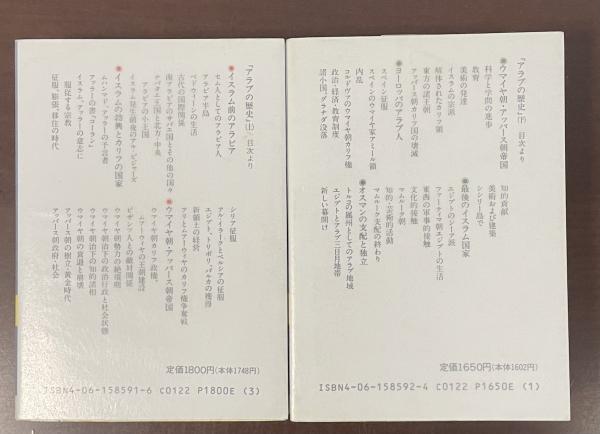 『アラブの歴史』(上) 目次より
●イスラム前のアラビア
セム人としてのアラビア人
アラビア半島
ベドウィーンの生活
古代の国際関係
南アラビアのサバエ王国とその他の国々
ナバタエ王国と北方・中央
アラビアの小王国
イスラム発生前後のアル・ヒジャーズ
●イスラムの勃興とカリフの国家
ムハンマド、アッラーの予言者
アッラーの書「コーラン」
イスラム、アッラーの意志に
服従する宗教
征服、膨張、移住の時代
シリア征服
アル・イラークとペルシアの征服
エジプト、トリポリ、バルカの獲得
新領土の経営
アリとムアーウィヤのカリフ権争奪戦
●ウマイヤ朝・アッバース朝帝国
ウマイヤ朝カリフ政権、
ムアーウィヤの王朝建設
ビザンツ人との敵対関係
ウマイヤ朝勢力の絶頂期
ウマイヤ朝治下の政治行政と社会状態
ウマイヤ朝治下の知的諸相
ウマイヤ朝の衰退と崩壊
アッバース朝の樹立・黄金時代
アッバース朝政府・社会
定価1800円(本体1748円)
ISBN4-06-158591-6 C0122 P1800E (3)
『アラブの歴史』(下) 目次より
●ウマイヤ朝・アッバース朝帝国
科学と学問の進歩
教育
美術の発達
イスラムの宗派
解体されたカリフ領
東方の諸王朝
アッバース朝カリフ国の壊滅
●ヨーロッパのアラブ人
スペイン征服
スペインのウマイヤ家アミール領
内乱
コルドヴァのウマイヤ朝カリフ権
政治・経済・教育制度
諸小国、グラナダ没落
知的貢献
美術および建築
シシリー島で
●最後のイスラム国家
エジプトのシーア派
ファーティマ朝エジプトの生活
東西の軍事的接触
文化的接触
マムルーク朝
知的・芸術的活動
マムルーク支配の終わり
●オスマンの支配と独立
トルコの属州としてのアラブ地域
エジプトとアラブ三日月地帯
新しい幕開け
定価1650円(本体1602円)
ISBN4-06-158592-4 C0122 P1650E (1)